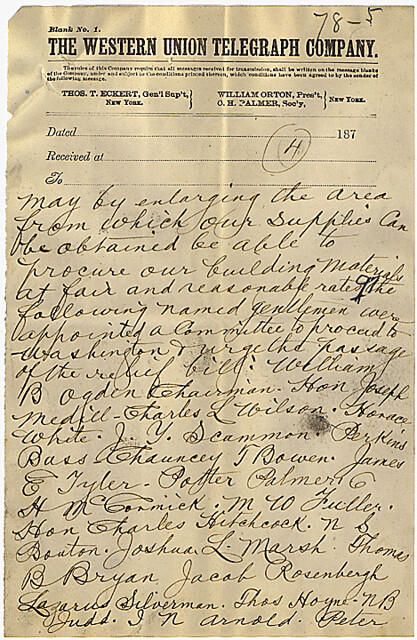 78-5
Blank No. 1.
THE WESTERN UNION TELEGRAPH COMPANY.
The rules of this Company require that all messages received for transmission, shall be written on the message blanks
of the Company, under and subject to the conditions printed thereon, which conditions have been agreed to by the sender of
the following message.
THOS. T. ECKERT, Gen'l Sup't, NEW YORK. WILLIAM ORTON, Pres't, O. H. PALMER, Sec'y, NEW YORK.
Dated 187
Received at
(4)
To
may by enlarging the area
from which our supplies can
be obtained be able to
procure our building materials
at fair and reasonable rates. The
following named gentlemen were
appointed a Committee to proceed to
Washington & urge the passage
of the relief bill: William
B Ogden Chairman. Hon Joseph
Medill - Charles L Wilson. Horace
White. J. Y. Scammon. Perkins
Bass Chauncey T Bowen. James
E Tyler - Potter Palmer C
H McCormick. M W Fuller.
Hon Charles Hitchcock. N S
Bouton. Joshua L. Marsh Thomas
B Bryan Jacob Rosenbergh
Lazarus Silverman. Thos Hoyne - N B
Judd. I N Arnold. Peter